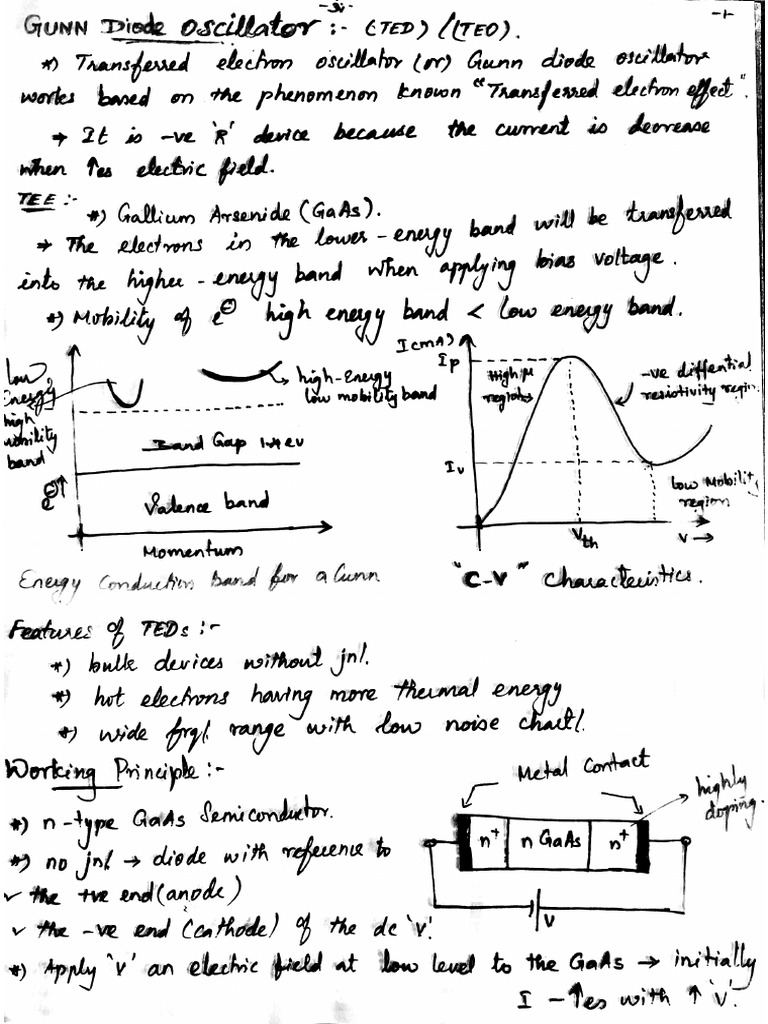 GUNN Diode Oscillator :- (TED) / (TEO).
*) Transferred electron oscillator (or) Gunn diode oscillator
works based on the phenomenon known "Transferred electron effect".
→ It is -ve 'R' device because the current is decrease
when ↑es electric field.
TEE :-
*) Gallium Arsenide (GaAs).
→ The electrons in the lower-energy band will be transferred
into the higher-energy band when applying bias voltage.
*) Mobility of e⊖ high energy band < low energy band.
Low
Energy
high
mobility
band
high-Energy
low mobility band
Band Gap 1.4 ev
e⊖↑
Valence band
Momentum
Energy Conduction Band for a Gunn
I(mA)
Ip
High μ
region
-ve diffential
resistivity region
Iv
Low Mobility
region
Vth
V →
"C-V" Characteristics.
Features of TEDs :-
*) bulk devices without jn/.
*) hot electrons having more thermal energy
*) wide frq/. range with low noise chart/.
Working Principle :-
*) n-type GaAs Semiconductor.
*) no jn/. → diode with reference to
✓ the +ve end (anode)
✓ the -ve end (cathode) of the dc 'V'.
Metal Contact
highly
doping.
n+
n GaAs
n+
V
*) Apply 'V' an electric field at low level to the GaAs → initially
I - ↑es with ↑ 'V'.